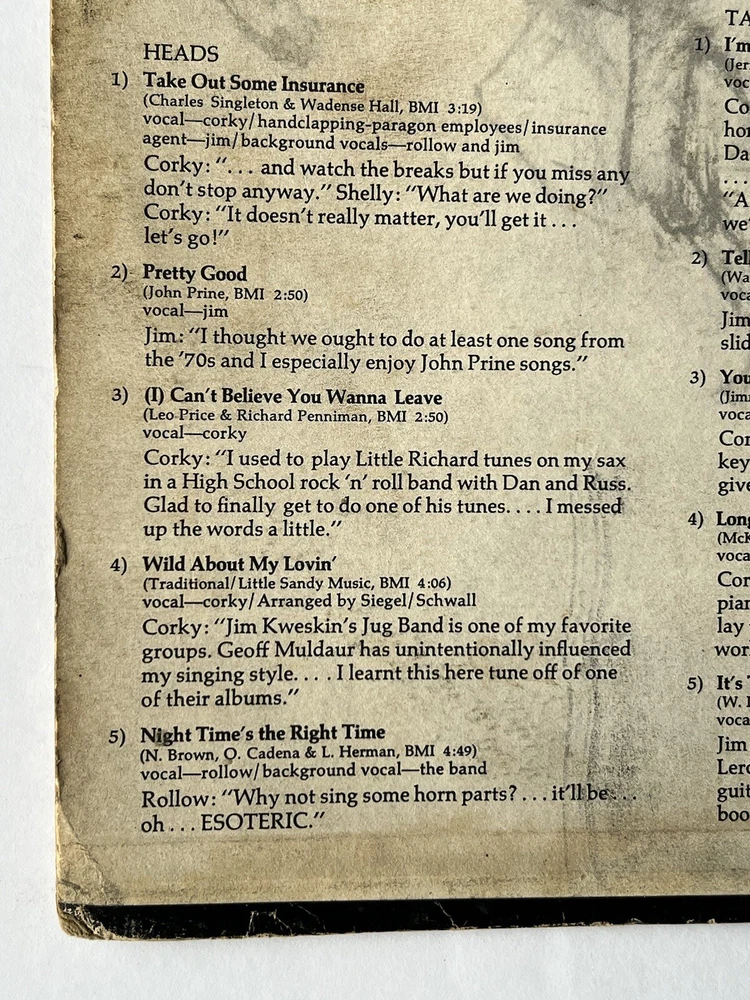 HEADS
1) Take Out Some Insurance
(Charles Singleton & Wadense Hall, BMI 3:19)
vocal—corky/handclapping-paragon employees/insurance
agent—jim/background vocals—rollow and jim
Corky: “. . . and watch the breaks but if you miss any
don’t stop anyway.” Shelly: “What are we doing?”
Corky: “It doesn’t really matter, you’ll get it . . .
let’s go!”
2) Pretty Good
(John Prine, BMI 2:50)
vocal—jim
Jim: “I thought we ought to do at least one song from
the ’70s and I especially enjoy John Prine songs.”
3) (I) Can’t Believe You Wanna Leave
(Leo Price & Richard Penniman, BMI 2:50)
vocal—corky
Corky: “I used to play Little Richard tunes on my sax
in a High School rock ’n’ roll band with Dan and Russ.
Glad to finally get to do one of his tunes. . . . I messed
up the words a little.”
4) Wild About My Lovin’
(Traditional/Little Sandy Music, BMI 4:06)
vocal—corky/Arranged by Siegel/Schwall
Corky: “Jim Kweskin’s Jug Band is one of my favorite
groups. Geoff Muldaur has unintentionally influenced
my singing style. . . . I learnt this here tune off of one
of their albums.”
5) Night Time’s the Right Time
(N. Brown, O. Cadena & L. Herman, BMI 4:49)
vocal—rollow/background vocal—the band
Rollow: “Why not sing some horn parts? . . . it’ll be . . .
oh . . . ESOTERIC.”
TA
1) I’m
(Jer
voc
Co
hor
Da
. . .
“A
we’
2) Tell
(Wa
voca
Jim
slid
3) You
(Jim
voca
Cor
key
give
4) Long
(McK
voca
Cor
pian
lay
wor
5) It’s
(W. 
voca
Jim
Lero
guit
boo